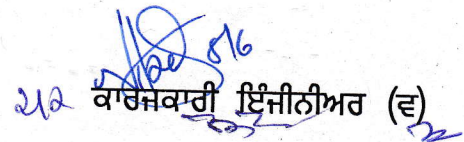 8/6
ਕਾਰਜਕਾਰੀ ਇੰਜੀਨੀਅਰ (ਵ)